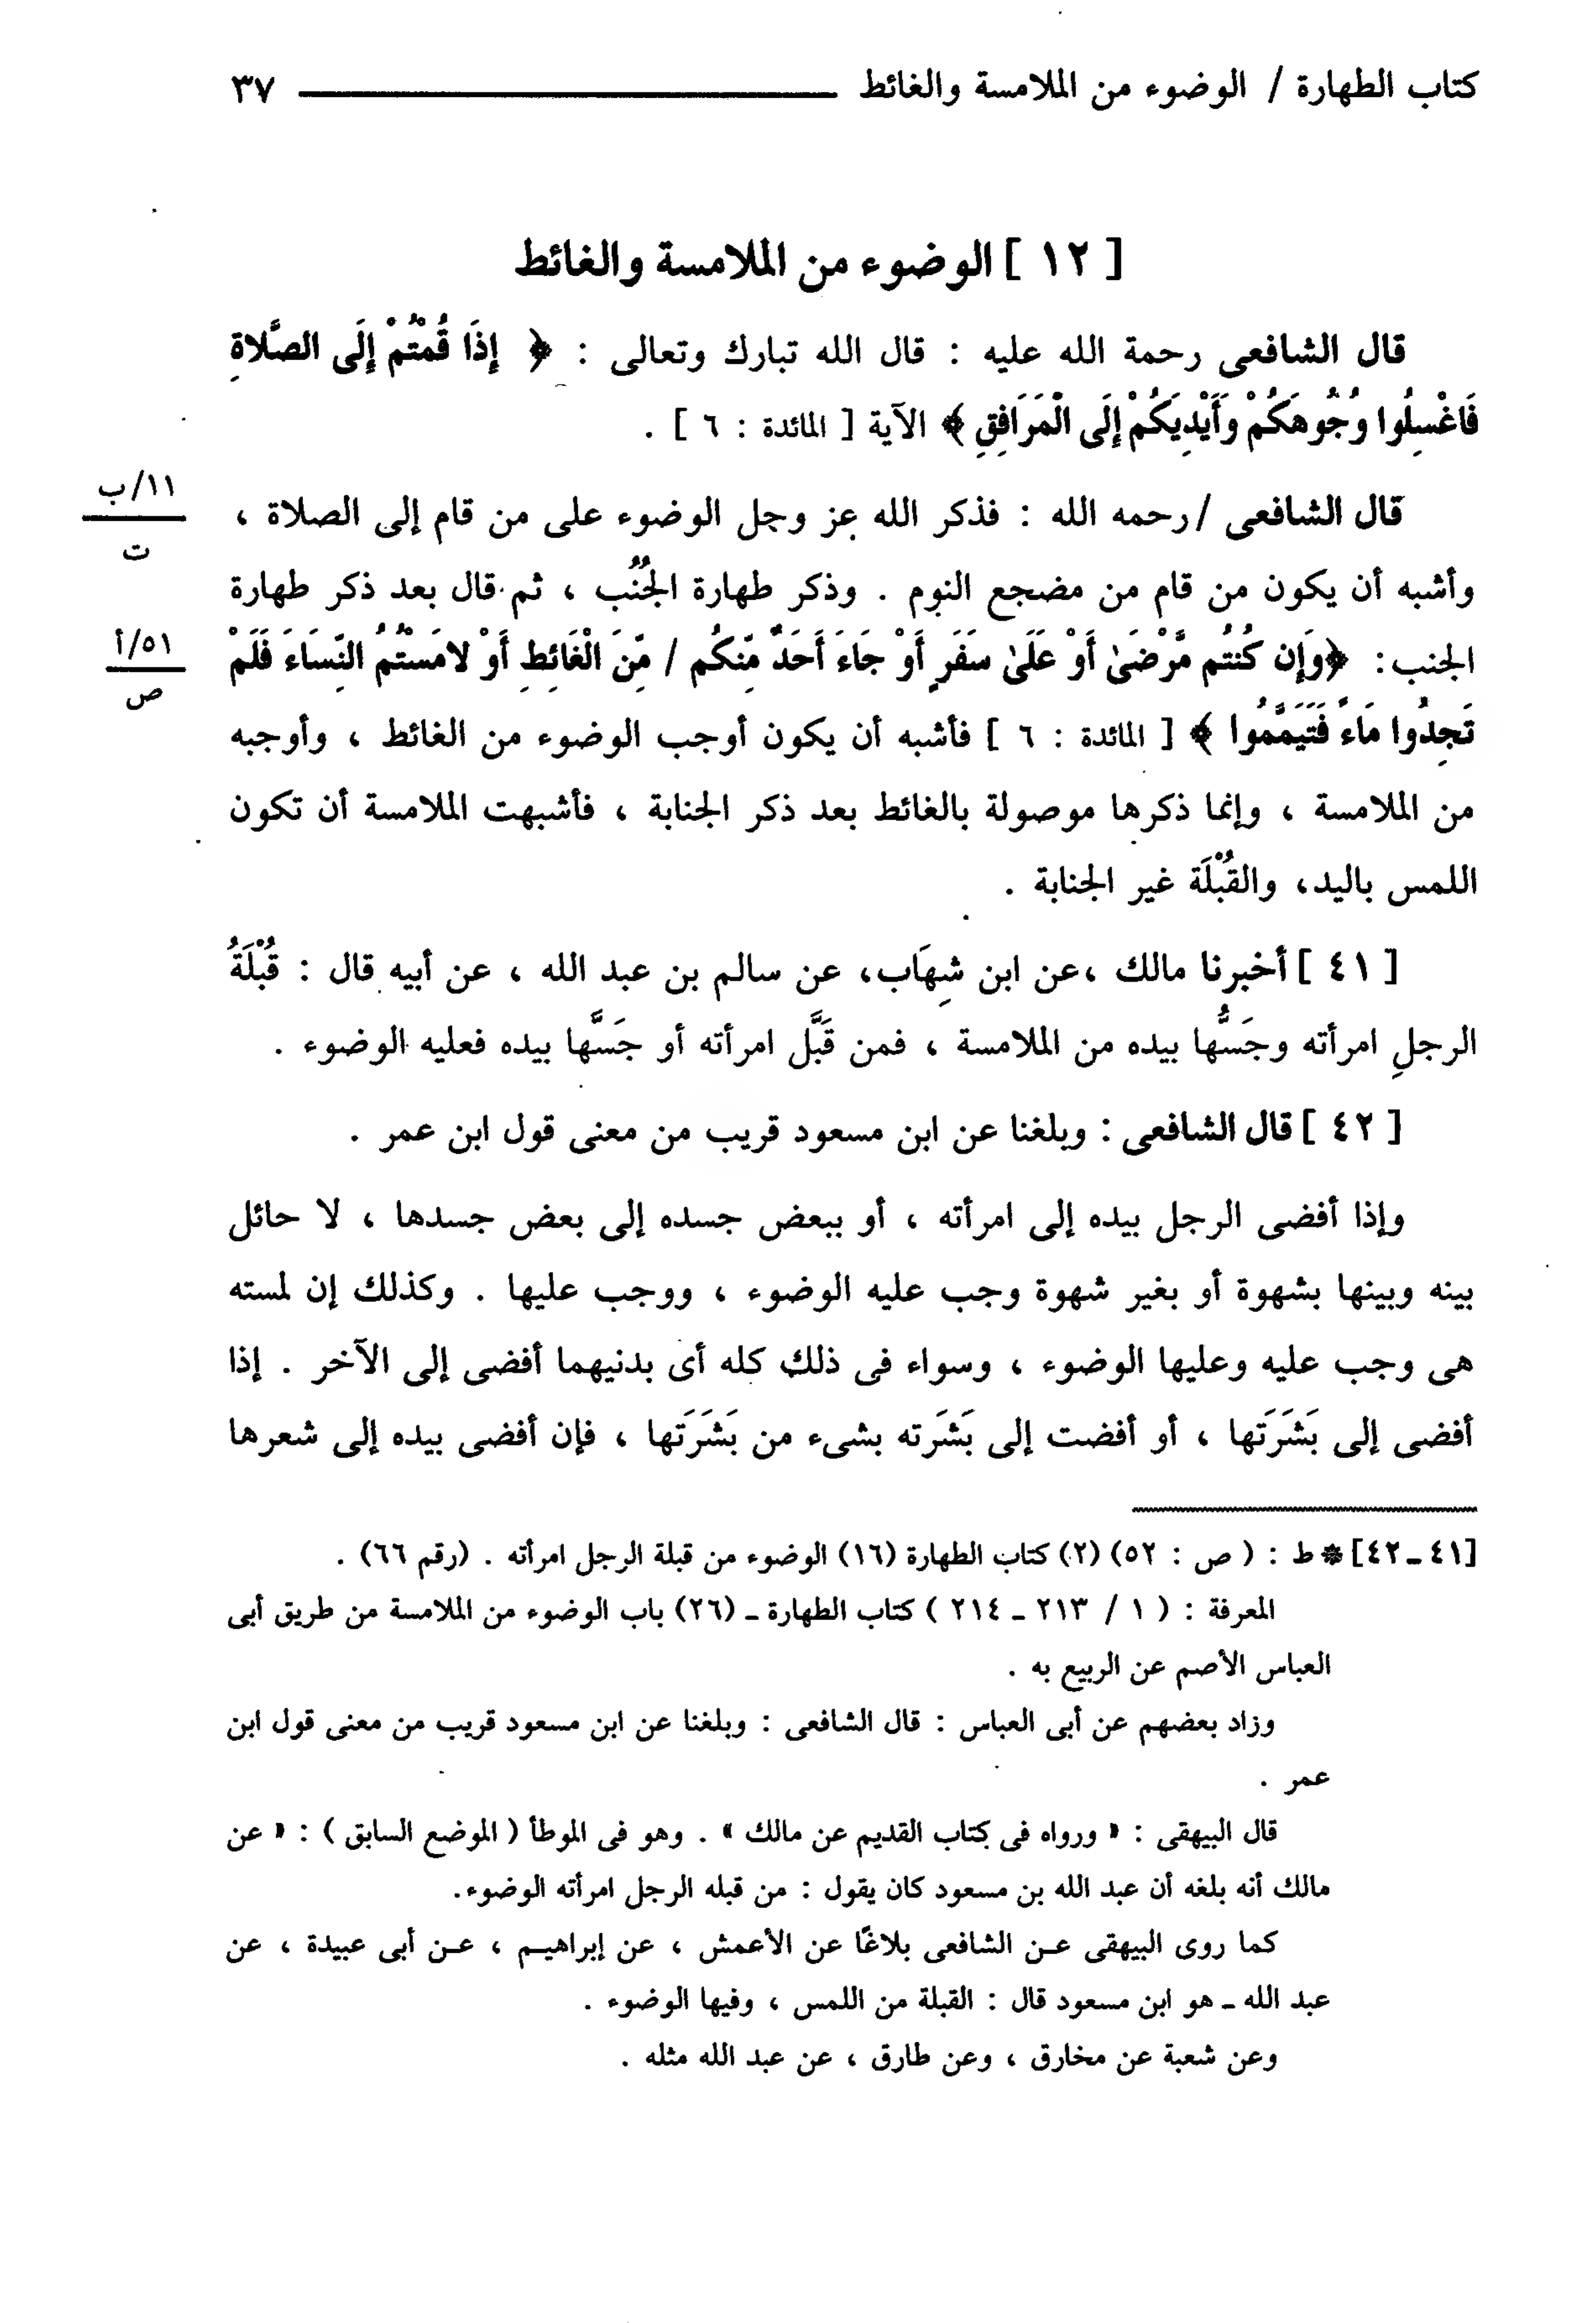 كتاب الطهارة / الوضوء من الملامسة والغائط ــــــــــ ٣٧
[ ١٢ ] الوضوء من الملامسة والغائط
قال الشافعى رحمة الله عليه : قال الله تبارك وتعالى : ﴿ إِذَا قُمْتُمْ إِلَى الصَّلاةِ
فَاغْسِلُوا وُجُوهَكُمْ وَأَيْدِيَكُمْ إِلَى الْمَرَافِقِ ﴾ الآية [ المائدة : ٦ ] .
قال الشافعى / رحمه الله : فذكر الله عز وجل الوضوء على من قام إلى الصلاة ،
١١/ب
ت
وأشبه أن يكون من قام من مضجع النوم . وذكر طهارة الجُنُب ، ثم قال بعد ذكر طهارة
الجنب : ﴿وَإِن كُنتُم مَّرْضَىٰ أَوْ عَلَىٰ سَفَرٍ أَوْ جَاءَ أَحَدٌ مِّنكُم / مِّنَ الْغَائِطِ أَوْ لامَسْتُمُ النِّسَاءَ فَلَمْ
٥١/أ
ص
تَجِدُوا مَاءً فَتَيَمَّمُوا ﴾ [ المائدة : ٦ ] فأشبه أن يكون أوجب الوضوء من الغائط ، وأوجبه
من الملامسة ، وإنما ذكرها موصولة بالغائط بعد ذكر الجنابة ، فأشبهت الملامسة أن تكون
اللمس باليد، والقُبْلَة غير الجنابة .
[ ٤١ ] أخبرنا مالك ،عن ابن شِهَاب، عن سالم بن عبد الله ، عن أبيه قال : قُبْلَةُ
الرجلِ امرأته وجَسُّها بيده من الملامسة ، فمن قَبَّل امرأته أو جَسَّها بيده فعليه الوضوء .
[ ٤٢ ] قال الشافعى : وبلغنا عن ابن مسعود قريب من معنى قول ابن عمر .
وإذا أفضى الرجل بيده إلى امرأته ، أو ببعض جسده إلى بعض جسدها ، لا حائل
بينه وبينها بشهوة أو بغير شهوة وجب عليه الوضوء ، ووجب عليها . وكذلك إن لمسته
هى وجب عليه وعليها الوضوء ، وسواء فى ذلك كله أى بدنيهما أفضى إلى الآخر . إذا
أفضى إلى بَشَرَتها ، أو أفضت إلى بَشَرته بشىء من بَشَرَتها ، فإن أفضى بيده إلى شعرها
[٤١ـ٤٢] * ط : ( ص : ٥٢) (٢) كتاب الطهارة (١٦) الوضوء من قبلة الرجل امرأته . (رقم ٦٦) .
المعرفة : ( ١ / ٢١٣ ـ ٢١٤ ) كتاب الطهارة ـ (٢٦) باب الوضوء من الملامسة من طريق أبى
العباس الأصم عن الربيع به .
وزاد بعضهم عن أبى العباس : قال الشافعى : وبلغنا عن ابن مسعود قريب من معنى قول ابن
عمر .
قال البيهقى : « ورواه فى كتاب القديم عن مالك » . وهو فى الموطأ ( الموضع السابق ) : « عن
مالك أنه بلغه أن عبد الله بن مسعود كان يقول : من قبله الرجل امرأته الوضوء.
كما روى البيهقى عـن الشافعى بلاغًا عن الأعمش ، عن إبراهيـم ، عـن أبى عبيدة ، عن
عبد الله ـ هو ابن مسعود قال : القبلة من اللمس ، وفيها الوضوء .
وعن شعبة عن مخارق ، وعن طارق ، عن عبد الله مثله .